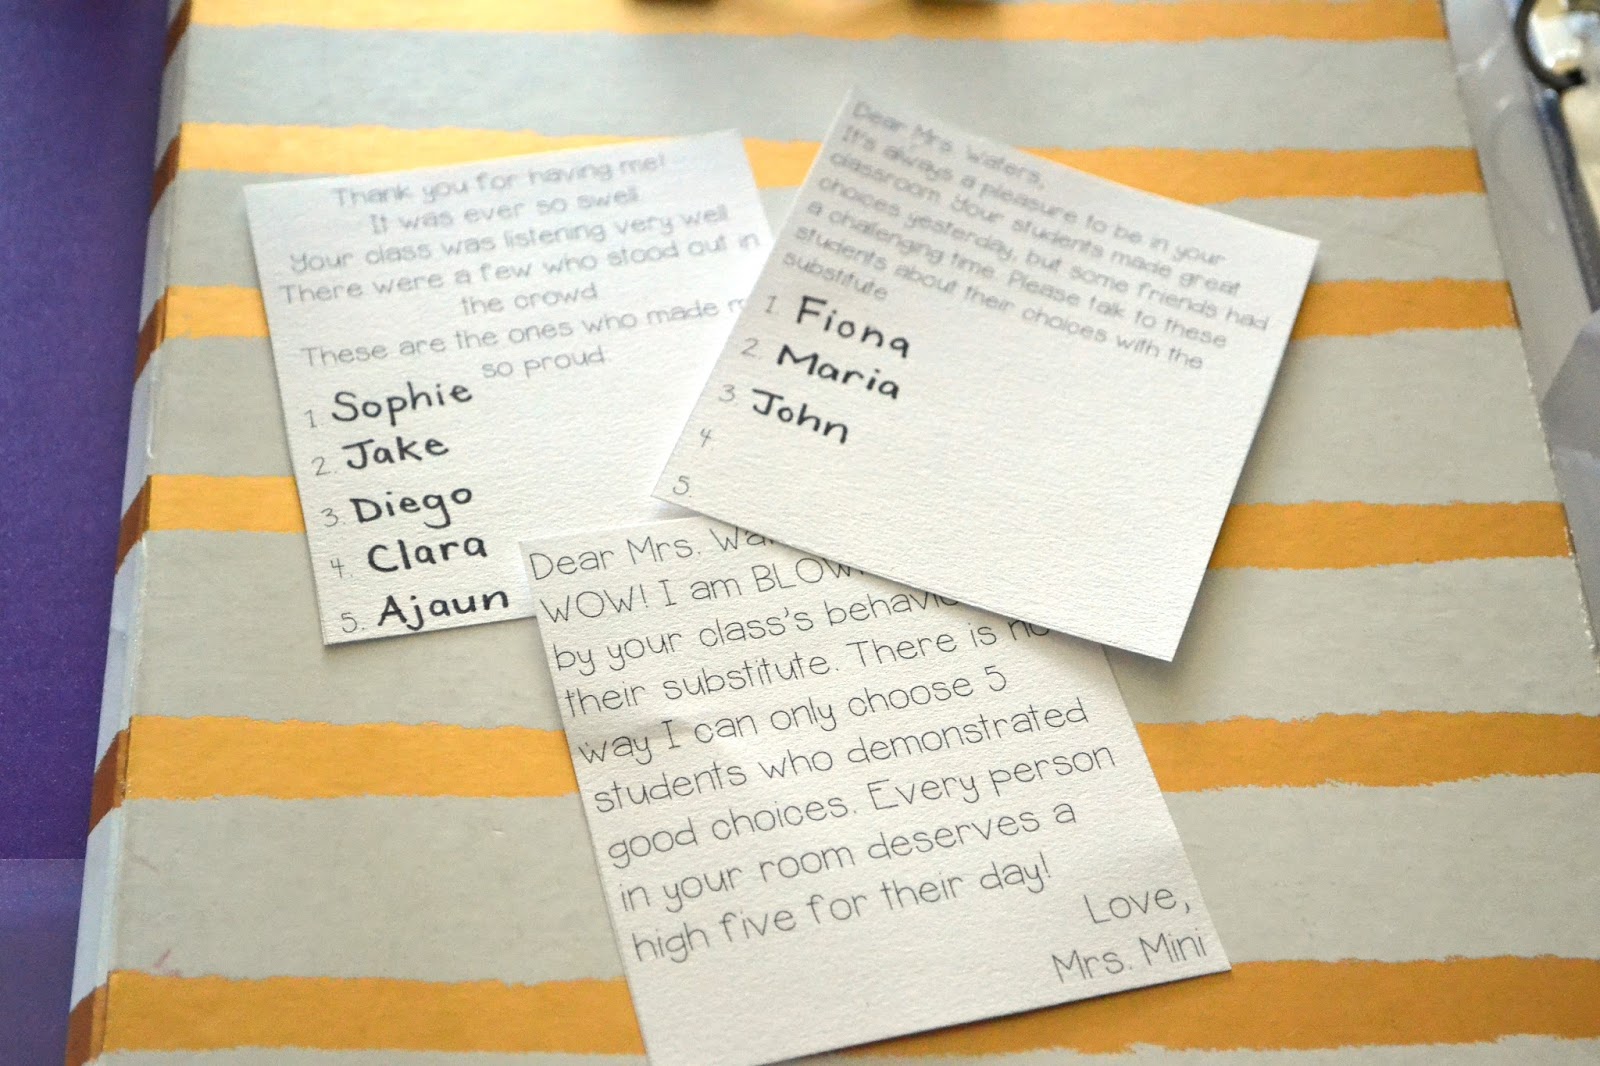 Thank you for having me!
It was ever so swell
Your class was listening very well
There were a few who stood out in
the crowd
These are the ones who made
so proud.
1. Sophie
2. Jake
3. Diego
4. Clara
5. Ajaun
Dear Mrs. Waters,
It's always a pleasure to be in your
classroom. Your students made great
choices yesterday, but some friends had
a challenging time. Please talk to these
students about their choices with the
substitute
1. Fiona
2. Maria
3. John
4
5.
Dear Mrs.
WOW! I am
by your class's
their substitute. There is no
way I can only choose 5
students who demonstrated
good choices. Every person
in your room deserves a
high five for their day!
Love,
Mrs. Mini